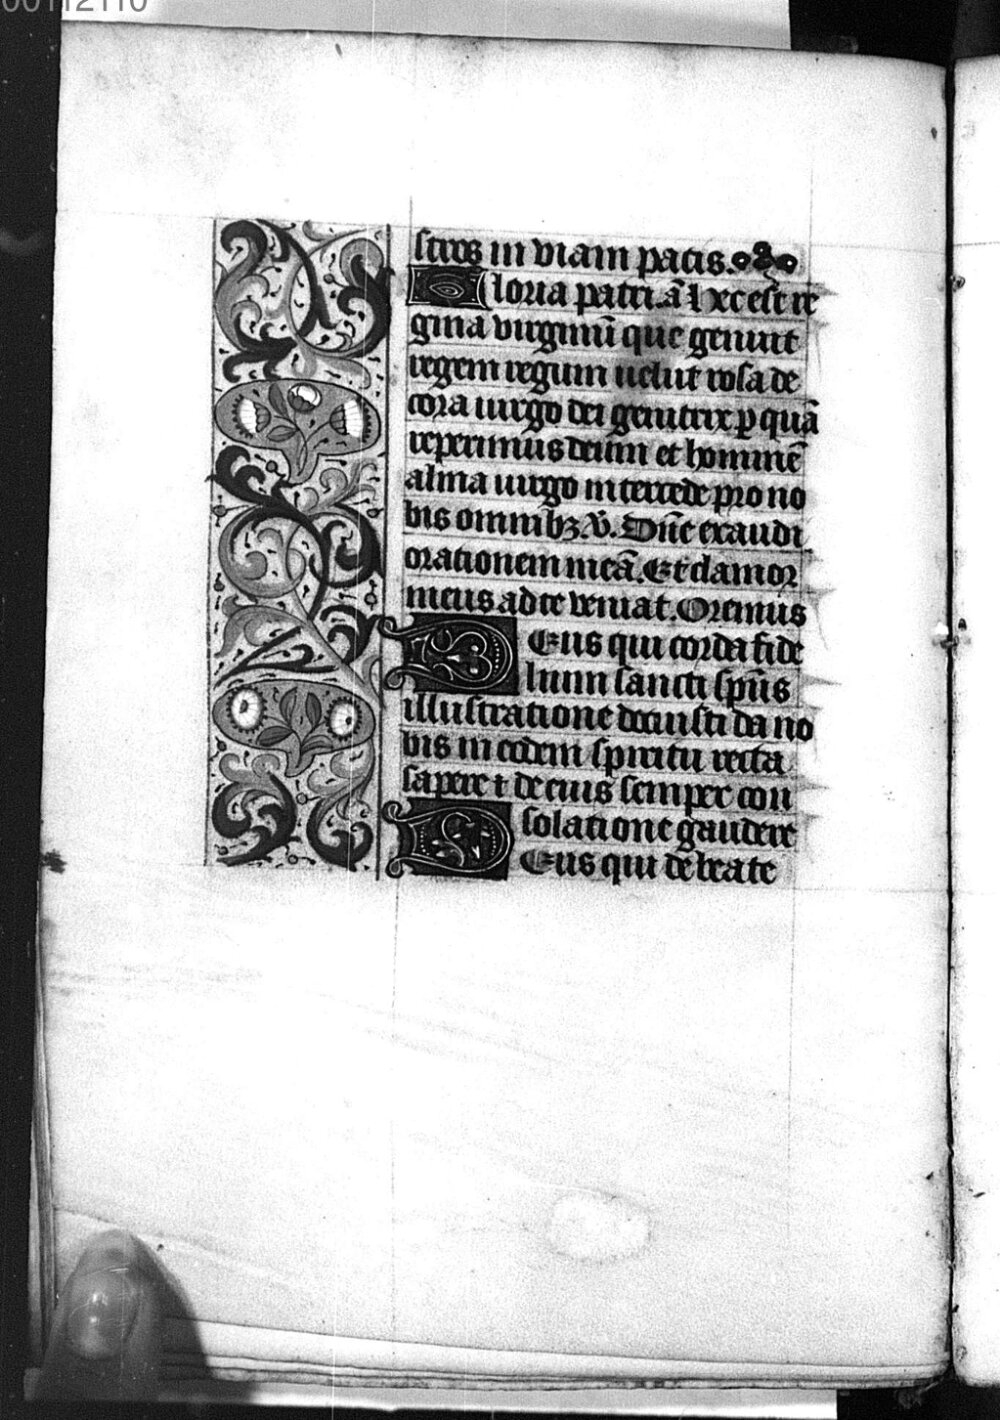 00112110
stros in viam pacis.
Gloria patri. ā Hec est re
gina virginū que genuit
regem regum uelut rosa de
cora uirgo dei genitrix ꝑ quā
reperimus deum et hominē
alma uirgo intercede pro no
bis omnibꝫ. V̄. Dn̄e exaudi
orationem meā. Et clamor
meus ad te veniat. Oremus
Deus qui corda fide
lium sancti sp̄us
illustratione docuisti da no
bis in eodem spiritu recta
sapere ⁊ de eius semper con
solatione gaudere
Deus qui de beate